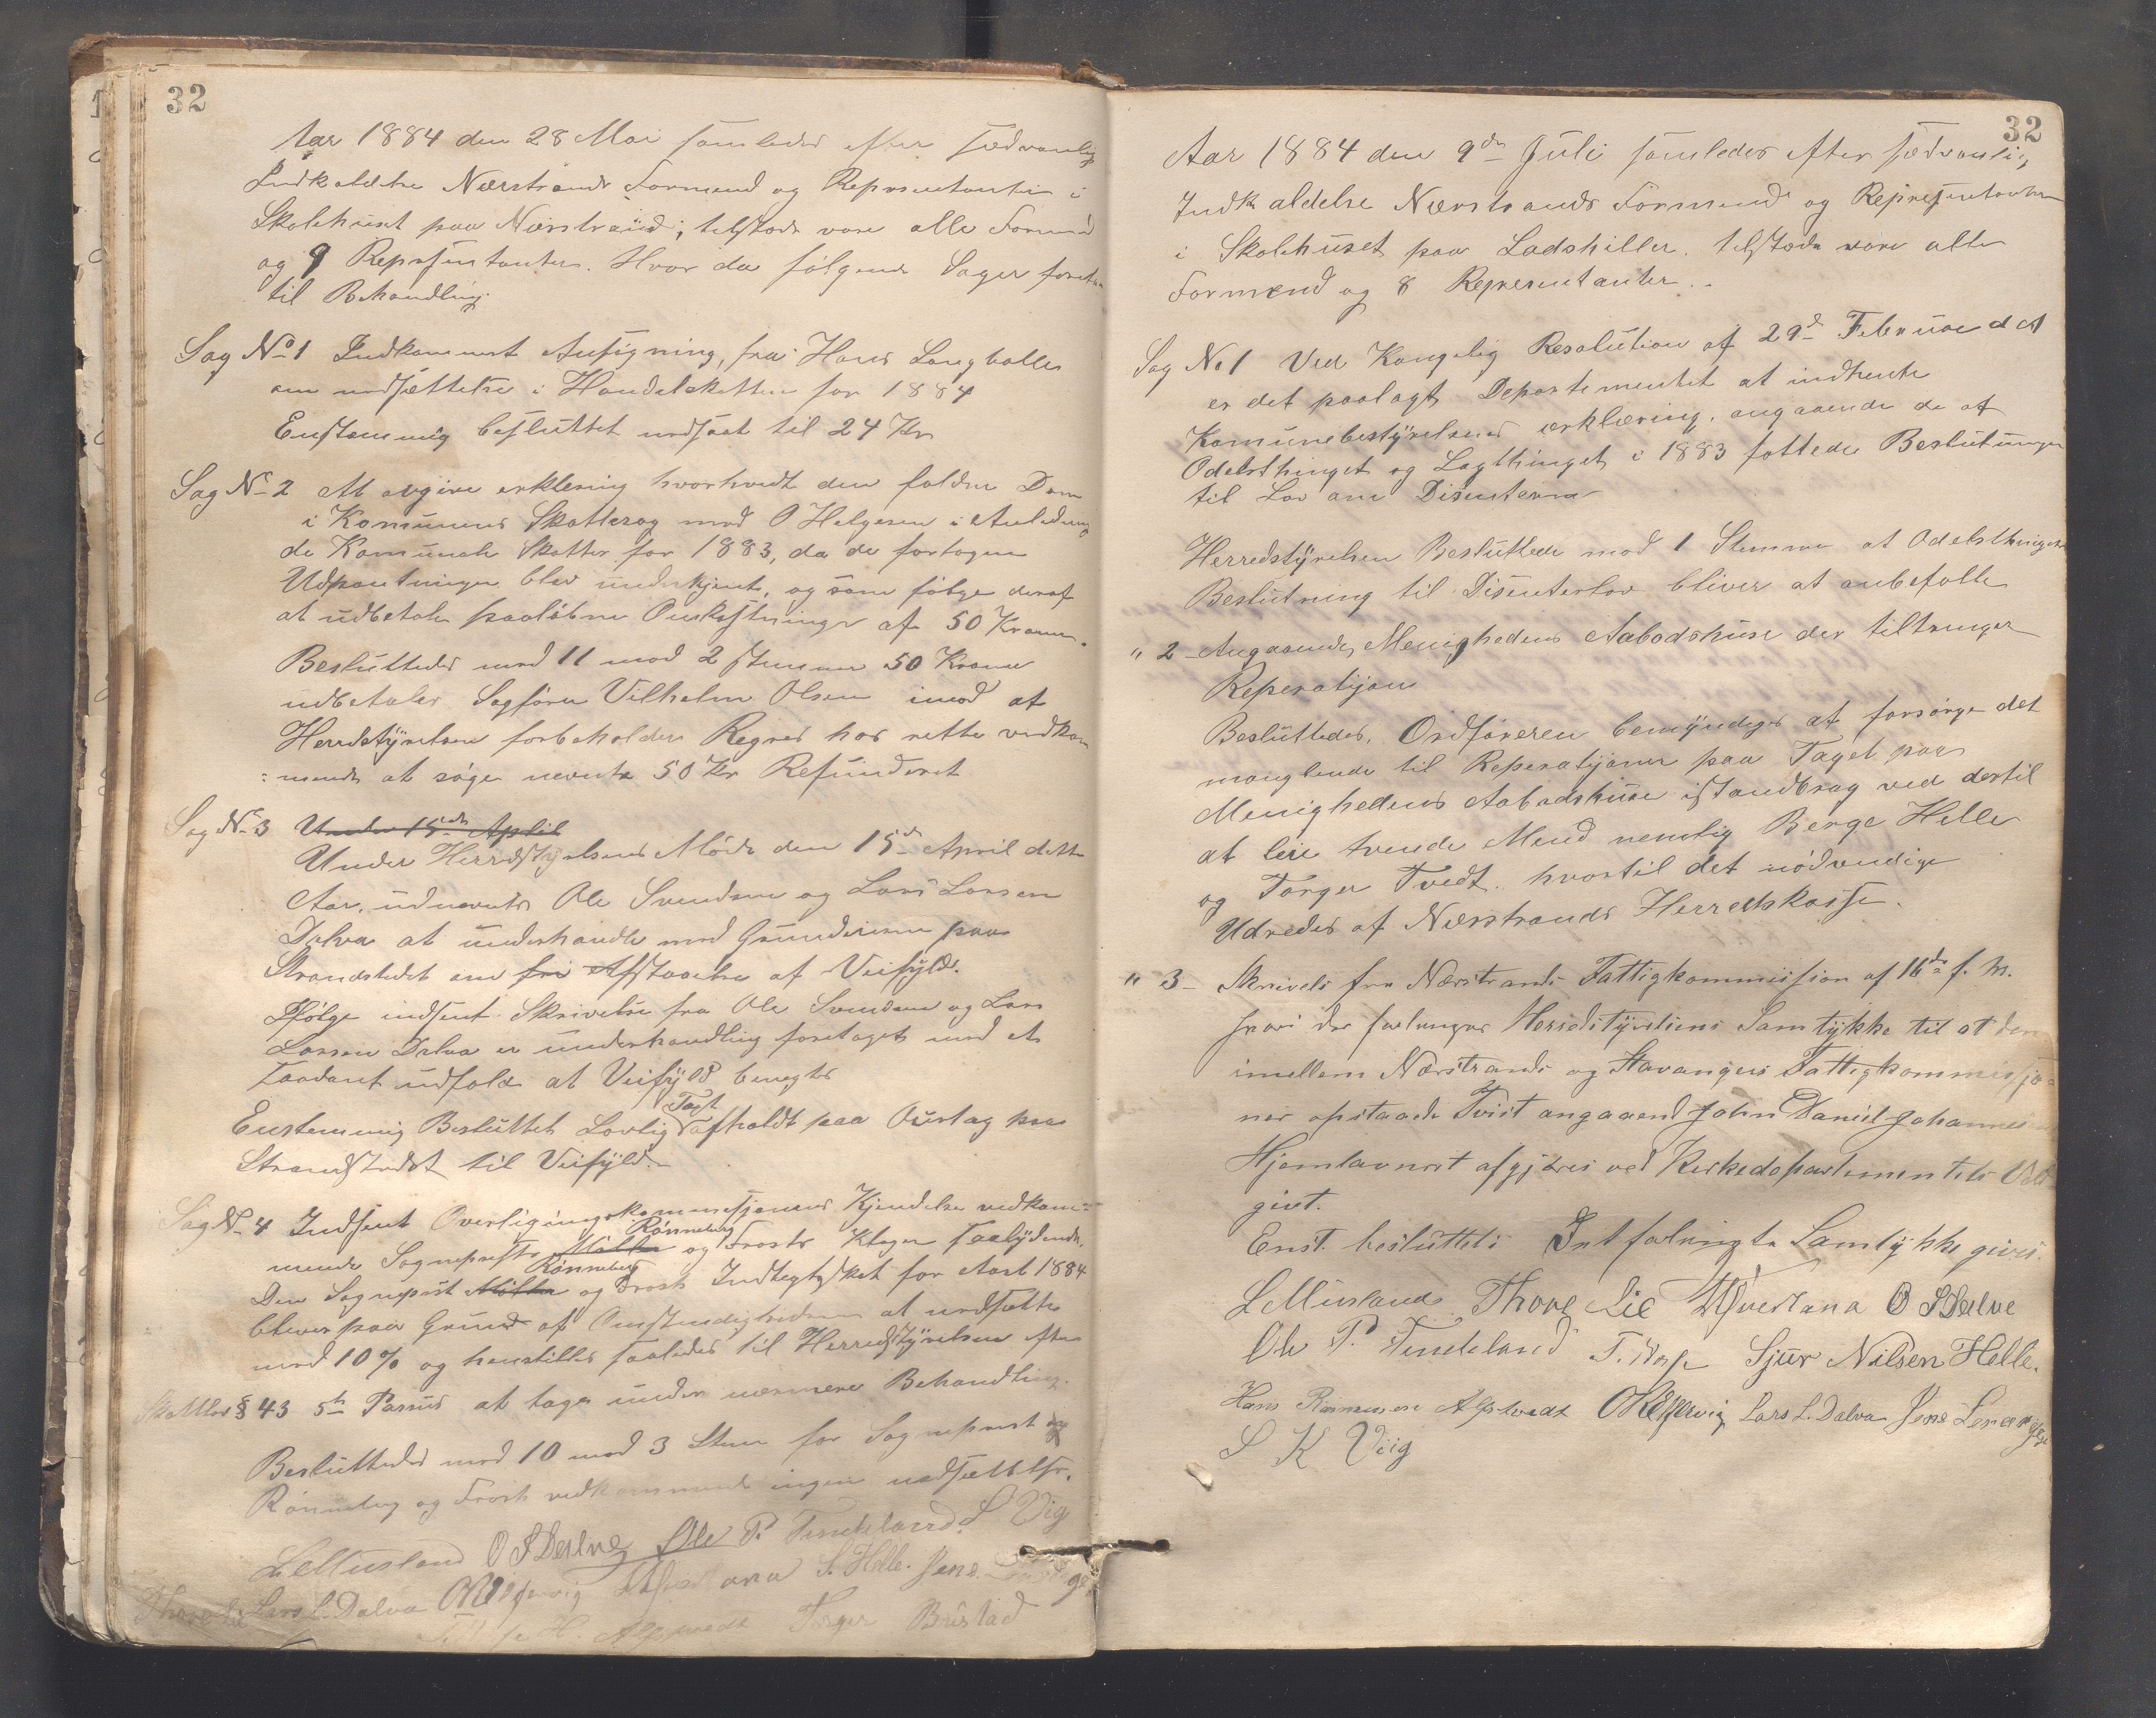 32
Aar 1884 den 28 Mai samledes efter sædvanlig
Indkaldelse Nærstrands Formænd og Repræsentanter i
Skolehuset paa Nærstrand; tilstæde vare alle Formænd
og 9 Repræsentanter. Hvor da følgende Sager foretes
til Behandling.
Sag No 1 Indkommet Ansøgning, fra Hans
om nedsættelse i Handelskatten for 1884
Enstemmig besluttet nedsat til 24 Kr
Sag No 2 At avgive erklering hvorhvidt den faldne Dom
i Komunens Skattesag mod O Helgesen i Anledning
de Komunale Skatter for 1883, da de fortagne
Udpantninger blev underkjent, og som følge deraf
at udbetale paaløbne Omkostninger af 50 Kroner.
Besluttedes med 11 mod 2 stemmer 50 Kroner
udbetales Sagfører Vilhelm Olsen imod at
Herredstyrelsen forbeholder Regres hos rette vedkom
:mende at søge nevnte 50 Kr Refunderet
Sag No 3 Under 15de April
Under Herredstyrelsens Møde den 15de April dette
Aar, udnevntes Ole Svendsen og Lars Larsen
Dalva at underhandle med Grundeierne paa
Strandstedet om fri Afstaaelse af Veifyld.
Ifølge indsent Skrivelse fra Ole Svendsen og Lars
Larsen Dalva er underhandling foretaget med et
saadant udfald at Veifyld benegtes
Enstemmig Besluttet Lovlig Taxt afholdt paa Ourtag paa
Strandstedet til Veifyld.
Sag No 4 Indsent Overligningskommissjonens Kjendelse vedkom=
mende Sogneprest Møller Rønneberg og Frosts Klager saalydende,
Den Sogneprest Møller Rønneberg og Frosts Indtegtsskat for Aaret 1884
bliver paa Grund af Omstendigheder at nedsætte
med 10% og henstilles saaledes til Herredstyrelsen efter
Skattelov § 43 5te Passus at tage under nærmere Behandling.
Besluttedes med 10 mod 3 Stem for Sogneprest og
Rønneberg og Frosts vedkommende ingen nedsættelse.
L Musland O S Dalve Ole P. Tindeland. S Vig
Thore Lie Lars L. Dalva S. Helle. Jens
H. Torger
32
Aar 1884 den 9de Juli samledes efter sædvanlig
Indkaldelse Nærstrands Formend og Representanter
i Skolehuset paa Ladshiller. tilstæde vare alle
Formænd og 8 Representanter.
Sag No 1 Ved Kongelig Resolution af 29de Februar d A
er det paalagt Departementet at indhente
Komunebestyrelsens erklæring, angaaende de af
Odelsthinget og Lagthinget i 1883 fattede Beslutninger
til Lov om Disenterne
Herredstyrelsen Besluttede mod 1 Stemme at Odelsthingets
Beslutning til Disenterlov bliver at anbefalle
" 2 Angaaende Menighedens Aabodshuse der tiltrenger
Reperatjon
Besluttedes. Ordføreren bemyndiges at forsørge det
manglende til Reperatjoner paa Taget paa
Menighedens Aabodshuse istandbrag ved dertil
at leie tvende Mend nemlig Berge Helle
og Torger Tvedt. hvortil det nødvendige
Udredes af Nærstrands Herredskasse.
" 3 Skrivels fra Nærstrands Fattigkommission af 16de f. m.
hvori der forlanges Herredstyrelsens Samtykke til at den
imellem Nærstrands og Stavangers Fattigkommissjo=
ner opstaaede Tvist angaaend John Daniel Johannesen
Hjemlavnret afgjøres ved Kirkedepartementets Vold
givt.
Enst. besluttets Det forlangte Samtykke gives.
L Musland Thore Lie O S Dalve
Ole P. Tindeland Sjur Nilsen Helle.
Hans Rasmussen Lars L. Dalva Jens
S K Viig